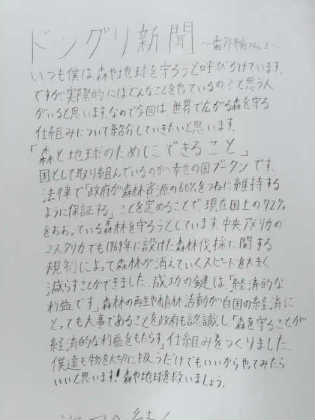 ドングリ新聞
いつも僕は森や地球を守ろうと呼びかけています。
ですが実際的にはどんなことをやっているの?と思う人
がいると思います。なので今回は世界で広がる森を守る
仕組みについて紹介していきたいと思います。
「森と地球のためにできること」
国として取り組んでいるのが幸せの国ブータンです。
法律で「政府が森林資源の60%をつねに維持する
ように保証する」ことを定めることで現在国土の72%
をおおっている森林を守ろうとしています。中央アメリカの
コスタリカでも1969年に設けた森林伐採に関する
規制によって森林が消えていくスピードを大きく
減らすことができました。成功の鍵は「経済的な
利益です」森林の再生や 活動が自国の経済に
とっても大事であることを政府も認識し「森を守ることが
経済的な利益をもたらす」仕組みをつくりました。
僕達も物を大切に扱うだけでもいいからやってみたら
いいと思います!森や地球を救いましょう。